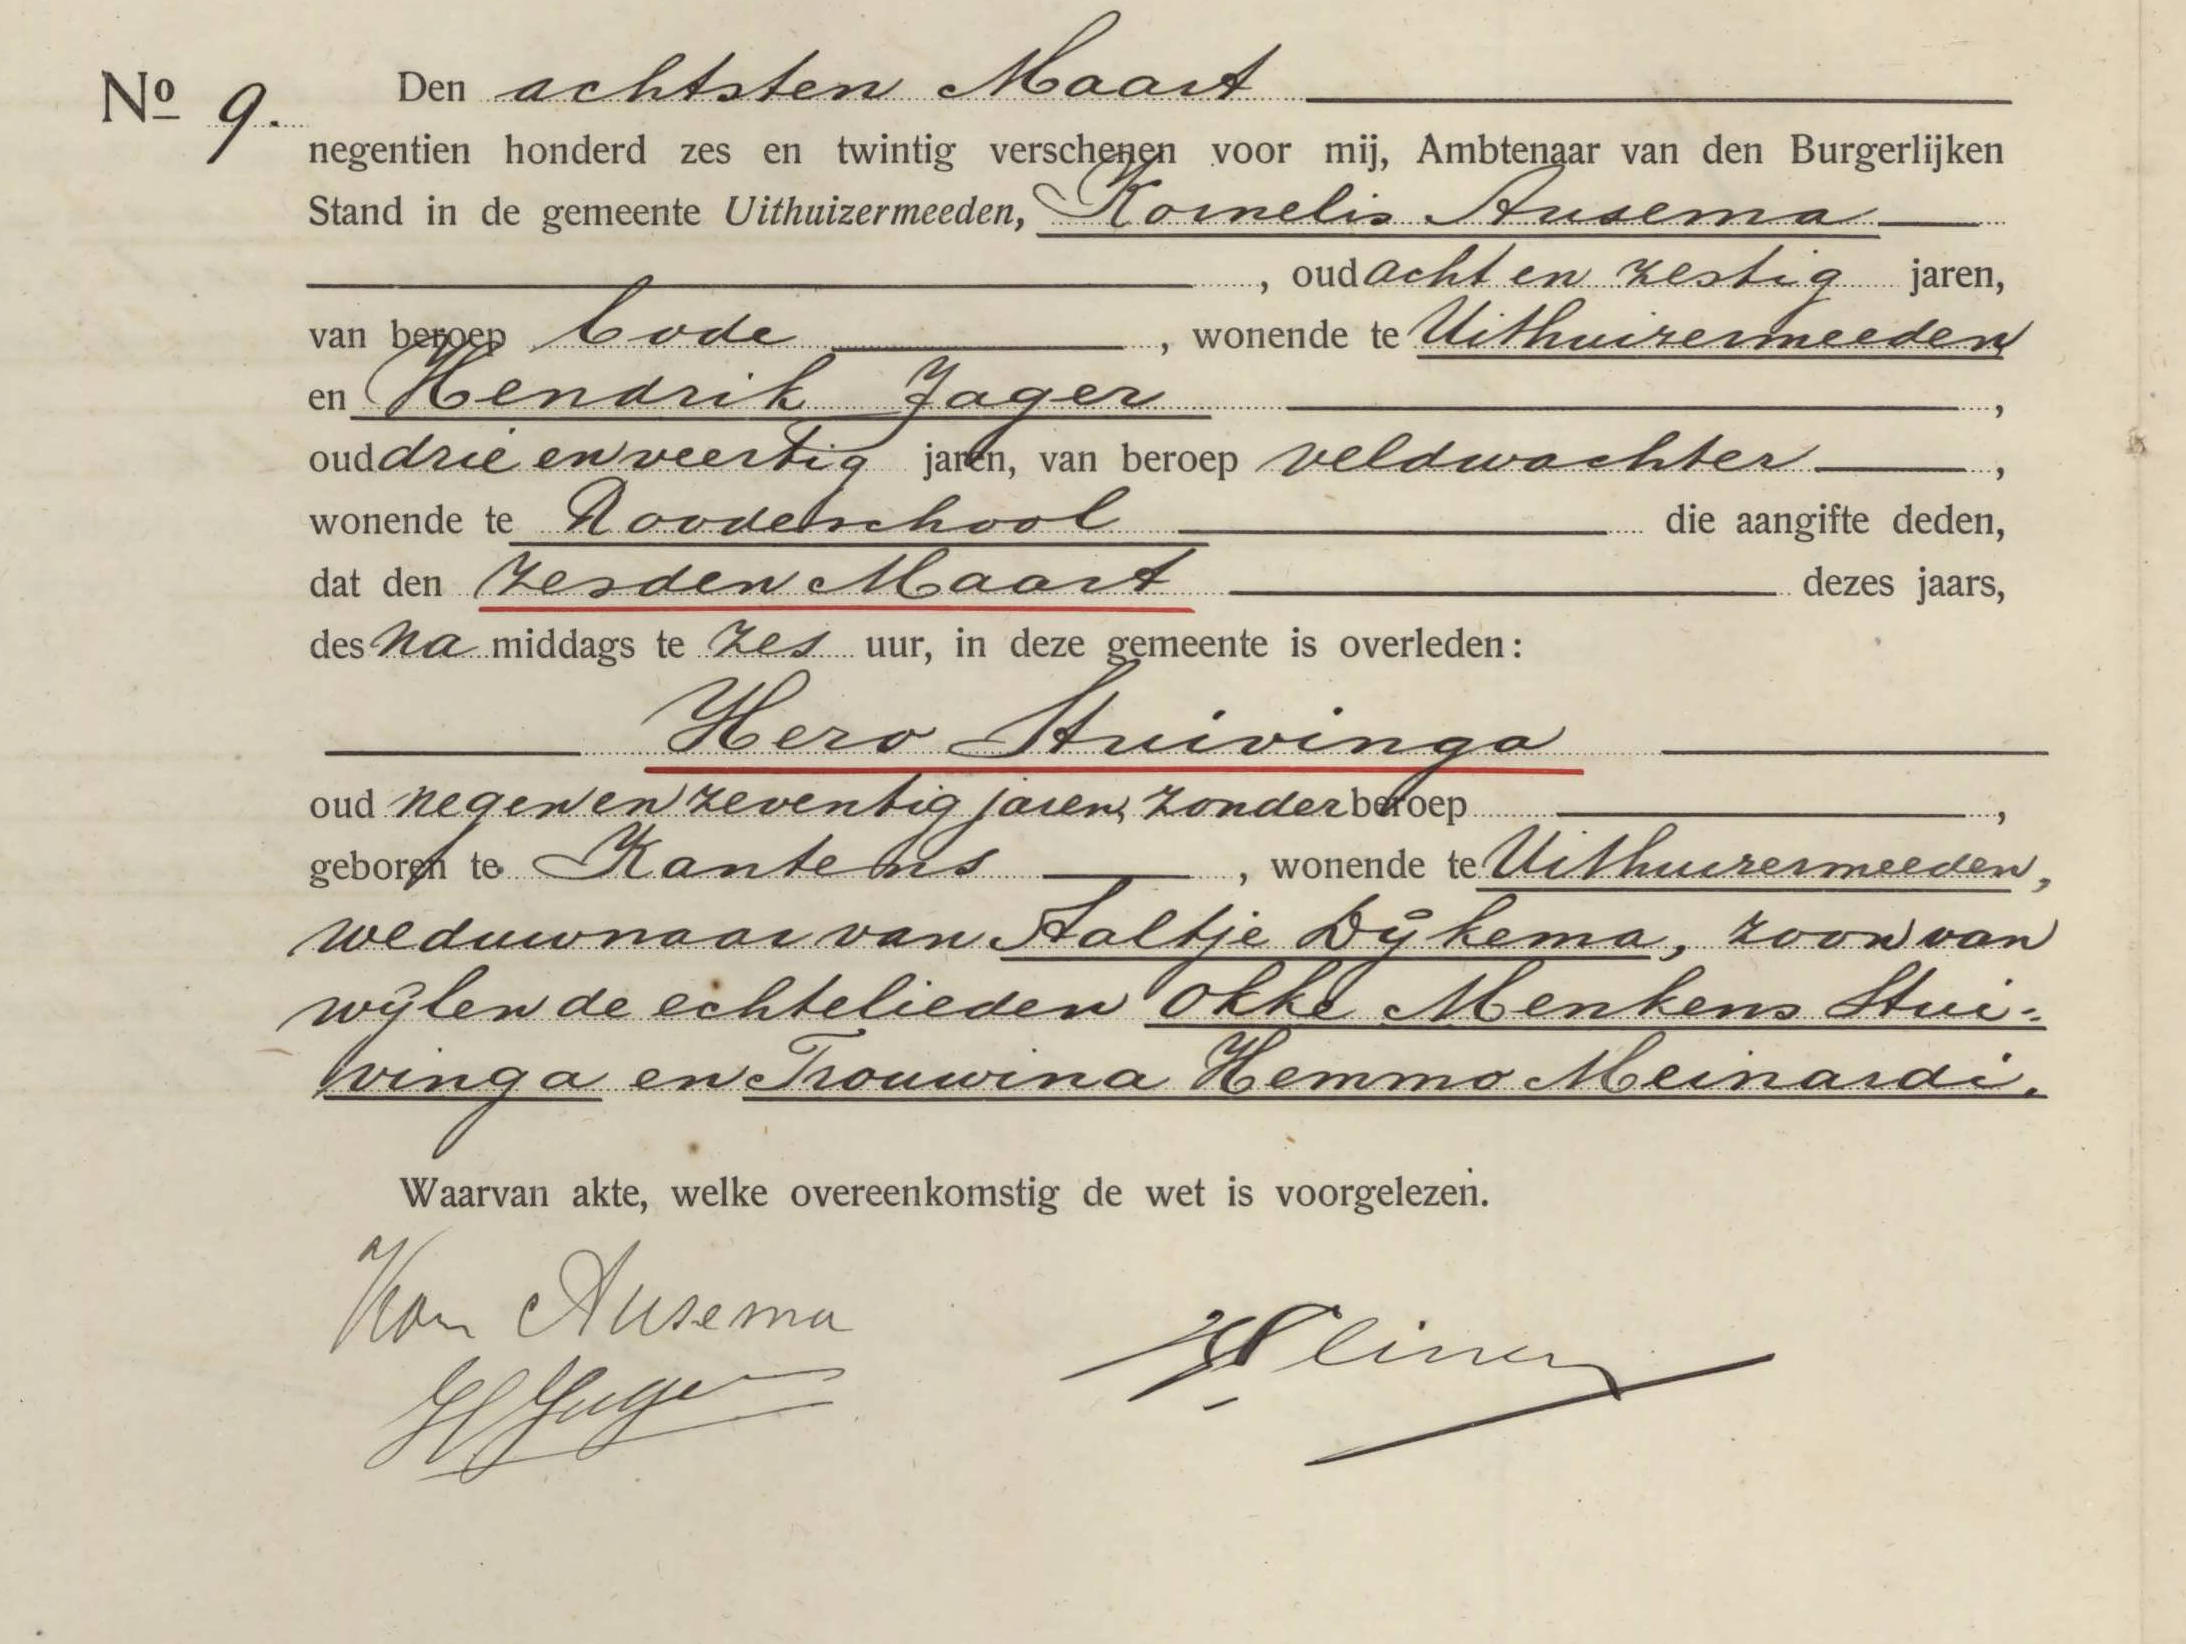 No 9. Den achtsten Maart
negentien honderd zes en twintig verschenen voor mij, Ambtenaar van den Burgerlijken
Stand in de gemeente Uithuizermeeden, Kornelis Ausema
, oud acht en zestig jaren,
van beroep bode, wonende te Uithuizermeeden
en Hendrik Jager,
oud drie en veertig jaren, van beroep veldwachter,
wonende te Roodeschool die aangifte deden,
dat den zesden Maart dezes jaars,
des na middags te zes uur, in deze gemeente is overleden:
Hero Stuivinga
oud negen en zeventig jaren, zonder beroep,
geboren te Kantens, wonende te Uithuizermeeden,
weduwnaar van Aaltje Dijkema, zoon van
wijlen de echtelieden Okke Menkens Stui-
vinga en Trouwina Hemmo Meinardi.
Waarvan akte, welke overeenkomstig de wet is voorgelezen.
Kor Ausema
HJager